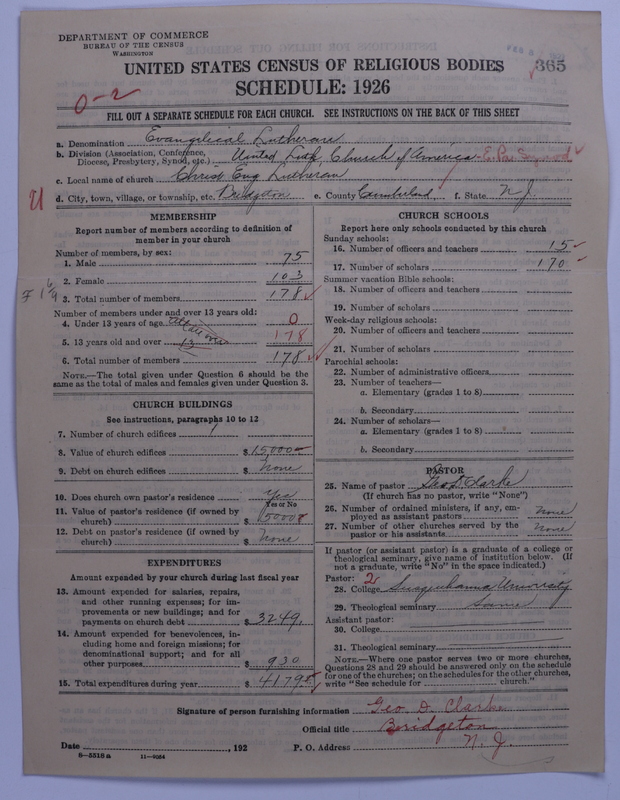 DEPARTMENT OF COMMERCE
BUREAU OF THE CENSUS
WASHINGTON
365
UNITED STATES CENSUS OF RELIGIOUS BODIES
SCHEDULE: 1926
0-2
FILL OUT A SEPARATE SCHEDULE FOR EACH CHURCH. SEE INSTRUCTIONS ON THE BACK OF THIS SHEET
a. Denomination Evangelical Lutheran
b. Division (Association, Conference, Diocese, Presbytery, Synod, etc.) United Luth. Church of America E. Pa. Synod
c. Local name of church Christ Eng Lutheran
d. City, town, village, or township, etc. Bridgeton e. County Cumberland f. State N.J.
MEMBERSHIP
Report number of members according to definition of
member in your church
Number of members, by sex:
1. Male 75
2. Female 103
3. Total number of members 178
Number of members under and over 13 years old:
4. Under 13 years of age 0
5. 13 years old and over 178
6. Total number of members 178
NOTE.—The total given under Question 6 should be the
same as the total of males and females given under Question 3.
CHURCH BUILDINGS
See instructions, paragraphs 10 to 12
7. Number of church edifices 1
8. Value of church edifices $ 15000
9. Debt on church edifices $ None
10. Does church own pastor's residence Yes
Yes or No
11. Value of pastor's residence (if owned by
church) $ 5000
12. Debt on pastor's residence (if owned by
church) $ None
EXPENDITURES
Amount expended by your church during last fiscal year
13. Amount expended for salaries, repairs,
and other running expenses; for im-
provements or new buildings; and for
payments on church debt $ 3249.
14. Amount expended for benevolences, in-
cluding home and foreign missions; for
denominational support; and for all
other purposes $ 930
15. Total expenditures during year $ 4179
CHURCH SCHOOLS
Report here only schools conducted by this church
Sunday schools:
16. Number of officers and teachers 15
17. Number of scholars 170
Summer vacation Bible schools:
18. Number of officers and teachers
19. Number of scholars
Week-day religious schools:
20. Number of officers and teachers
21. Number of scholars
Parochial schools:
22. Number of administrative officers
23. Number of teachers—
a. Elementary (grades 1 to 8)
b. Secondary
24. Number of scholars—
a. Elementary (grades 1 to 8)
b. Secondary
PASTOR
25. Name of pastor Geo D. Clarke
(If church has no pastor, write "None")
26. Number of ordained ministers, if any, em-
ployed as assistant pastors None
27. Number of other churches served by the
pastor or his assistants None
If pastor (or assistant pastor) is a graduate of a college or
theological seminary, give name of institution below. (If
not a graduate, write "No" in the space indicated.)
Pastor: 2
28. College Susquehanna University
29. Theological seminary Same
Assistant pastor:
30. College
31. Theological seminary
NOTE.—Where one pastor serves two or more churches,
Questions 28 and 29 should be answered only on the schedule
for one of the churches; on the schedules for the other churches,
write "See schedule for church."
Signature of person furnishing information Geo D. Clarke
Official title Bridgeton
Date , 192 P. O. Address N. J.
8—5518 a 11—9064